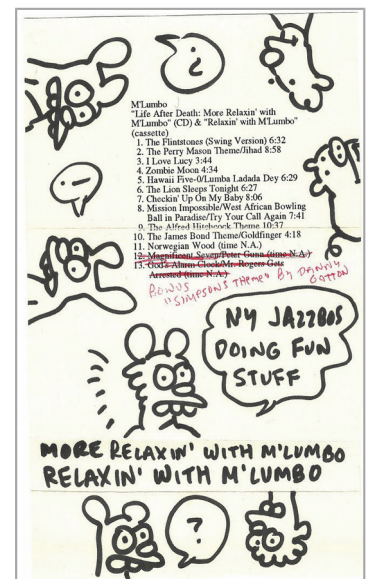 ¿
M'Lumbo
"Life After Death: More Relaxin' with
M'Lumbo" (CD) & "Relaxin' with M'Lumbo"
(cassette)
1. The Flintstones (Swing Version) 6:32
2. The Perry Mason Theme/Jihad 8:58
3. I Love Lucy 3:44
4. Zombie Moon 4:34
5. Hawaii Five-0/Lumba Ladada Dey 6:29
6. The Lion Sleeps Tonight 6:27
7. Checkin' Up On My Baby 8:06
8. Mission Impossible/West African Bowling
Ball in Paradise/Try Your Call Again 7:41
9. The Alfred Hitchcock Theme 10:37
10. The James Bond Theme/Goldfinger 4:18
11. Norwegian Wood (time N.A.)
12. Magnificent Seven/Peter Gunn (time N.A.)
13. God's Alarm Clock/Mr. Rogers Gets
Arrested (time N.A.)
BONUS
"SIMPSONS THEME" BY DANNY
NY JAZZBOS
DOING FUN
STUFF
MORE RELAXIN' WITH M'LUMBO
RELAXIN' WITH M'LUMBO
?